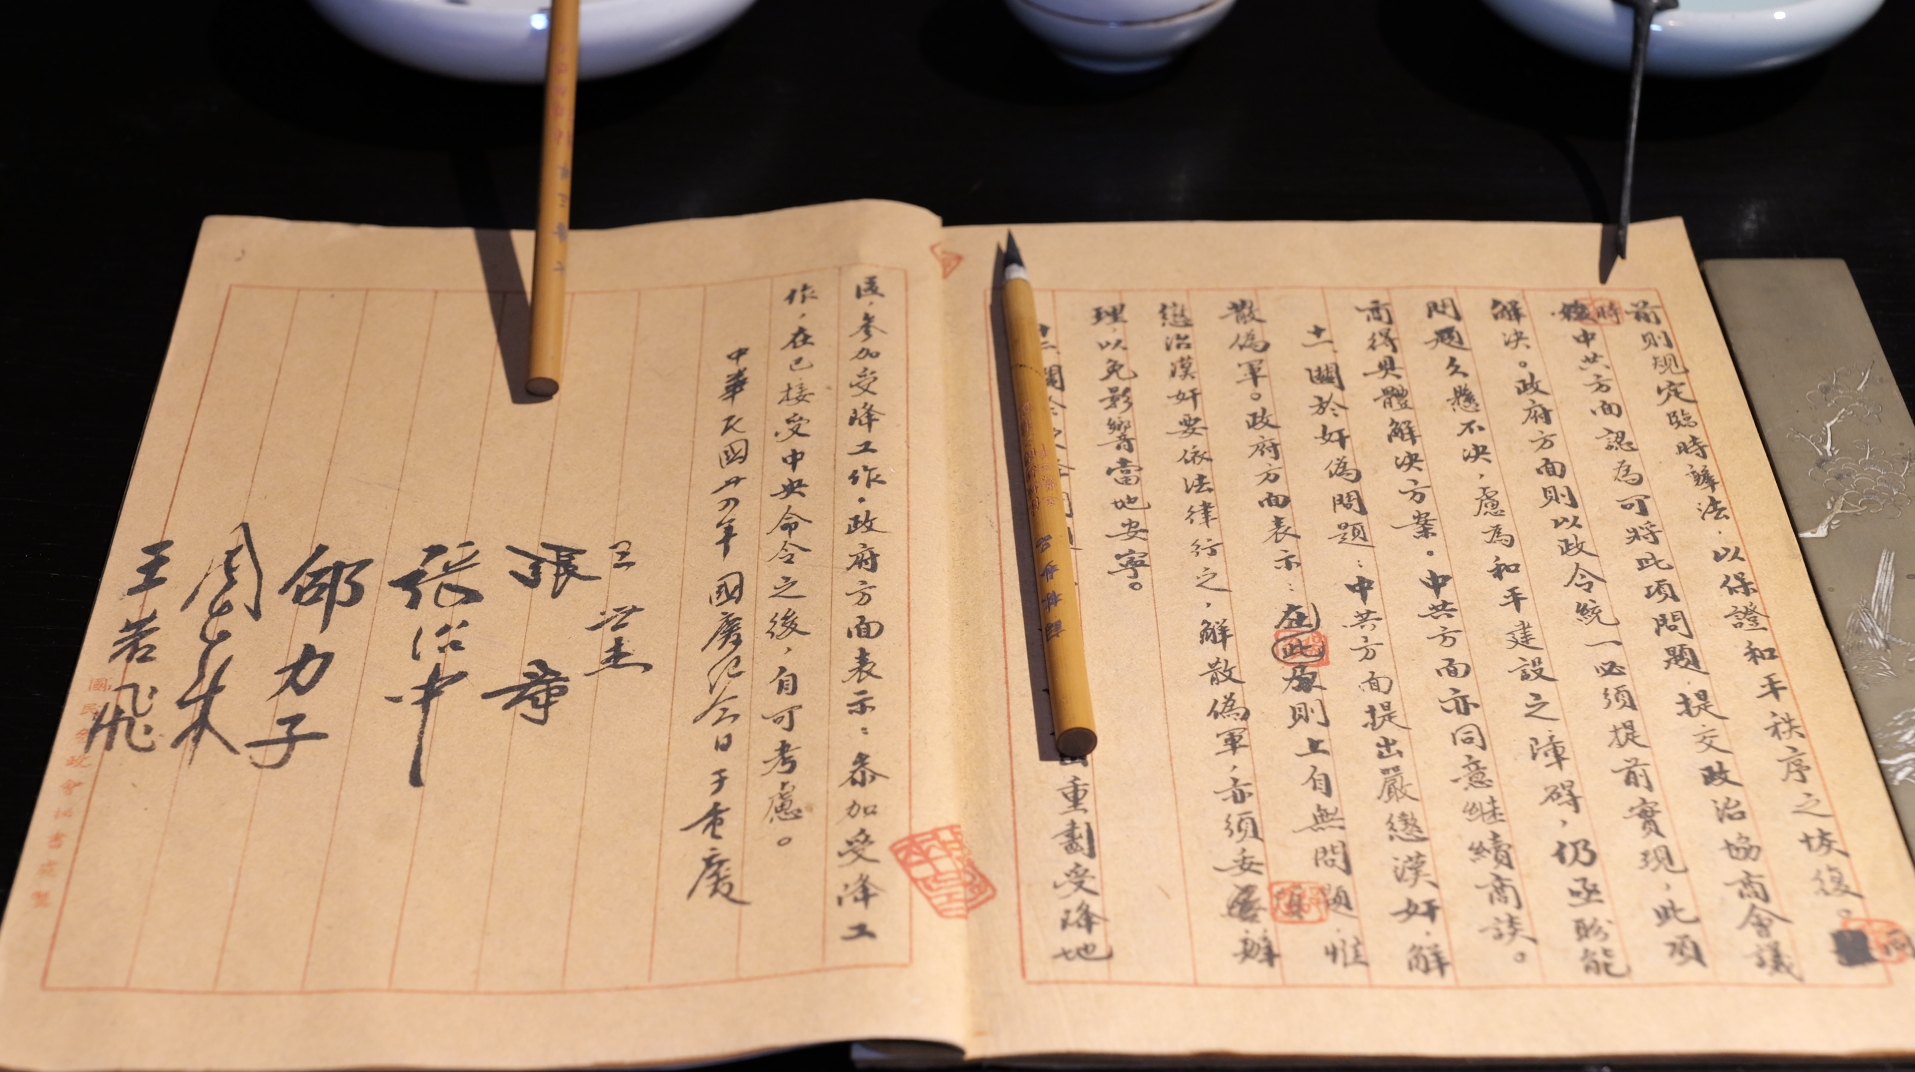 前則規定臨時辦法,以保證和平秩序之恢復。同
時中共方面認為可將此項問題,提交政治協商會議
解決。政府方面則以政令統一必須提前實現,此項
問題久懸不決,慮為和平建設之障碍,仍亟盼能
商得具體解決方案。中共方面亦同意繼續商談。
十一關於奸偽問題:中共方面提出嚴懲漢奸,解
散偽軍。政府方面表示:在此原則上自無問題,惟
懲治漢奸要依法律行之,解散偽軍,亦須妥慎辦
理,以免影響當地安寧。
重劃受降地
區,參加受降工作,政府方面表示:參加受降工
作,在已接受中央命令之後,自可考慮。
中華民國卅四年國慶紀念日于重慶
王世杰
張羣
張治中
邵力子
周恩來
王若飛
國民參政會秘書處製